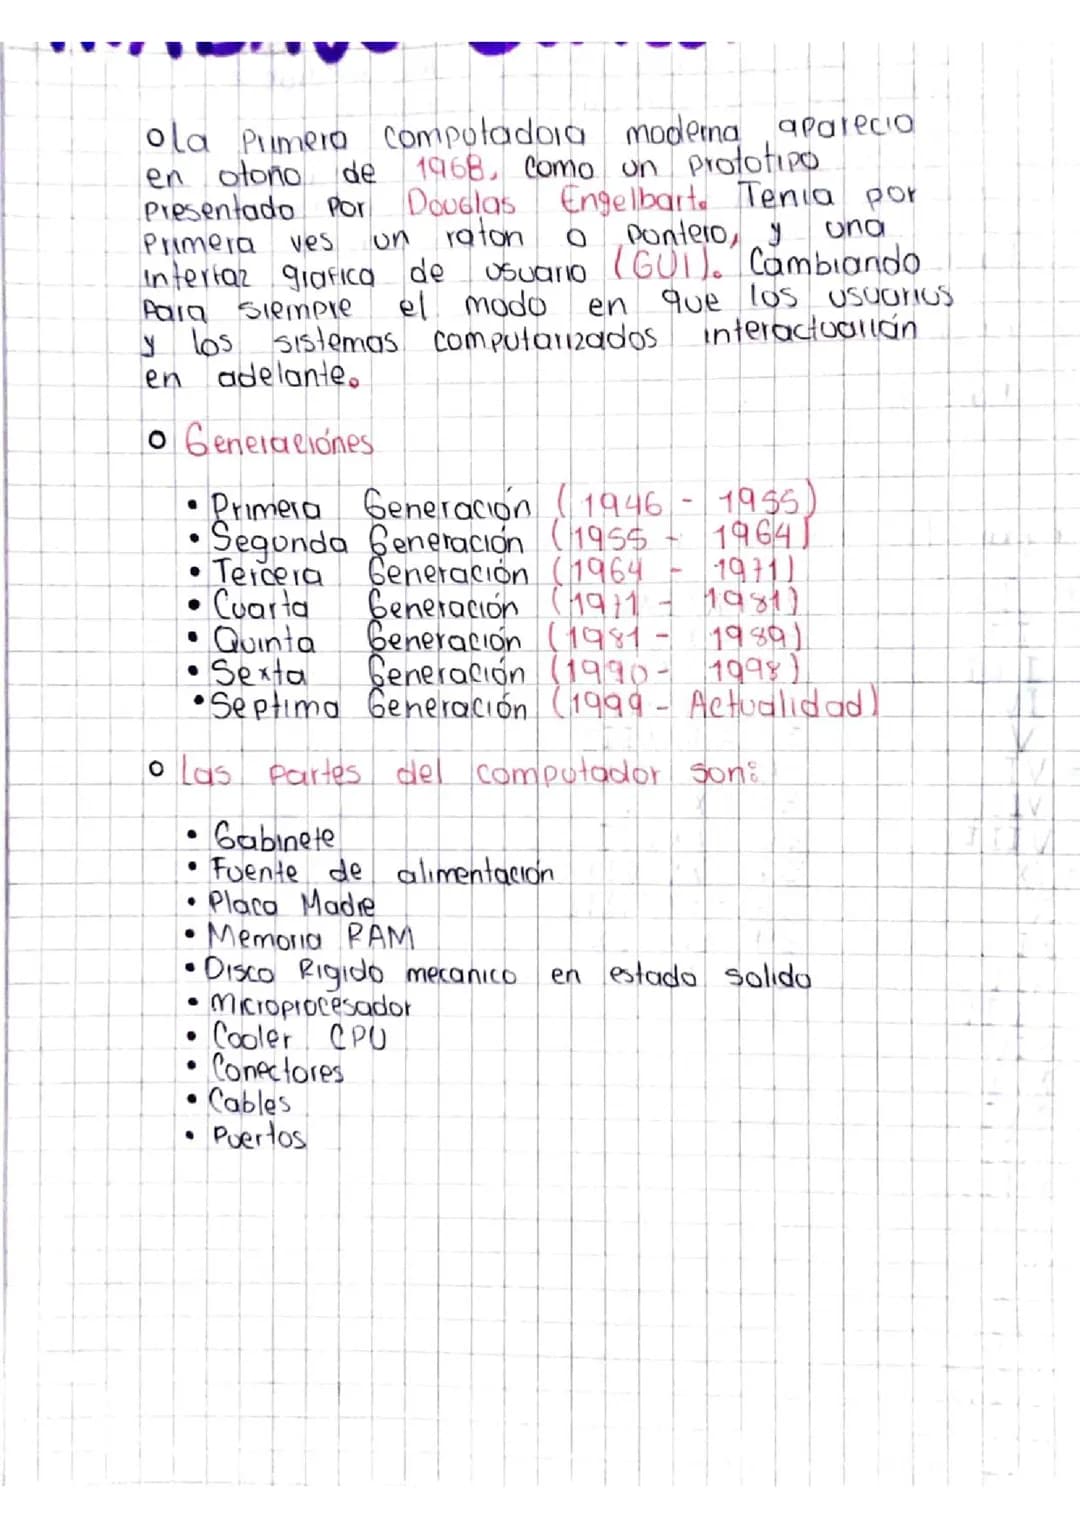 o la Primera computadora moderna aparecio
en otoño de 1968, como un prototipo
Presentado Por Douglas Engelbart. Tenia por
Primera ves un raton o pontero, y una
interfaz grafica de usuario (GUI). Cambiando
Para siempre el modo en que los usuarios
y los sistemas computarizados interactuarián
en adelante.
o Generaciónes
• Primera Generación (1946 - 1955)
• Segunda Generación (1955 - 1964)
• Tercera Generación (1964 - 1971)
• Cuarta Generación (1971 - 1981)
• Quinta Generación (1981 - 1989)
• Sexta Generación (1990 - 1998)
• Septima Generación (1999 - Actualidad)
o Las Partes del computador son:
• Gabinete
• Fuente de alimentación
• Placa Madre
• Memoria RAM
• Disco Rigido mecanico en estado solido
• Microprocesador
• Cooler CPU
• Conectores
• Cables
• Puertos